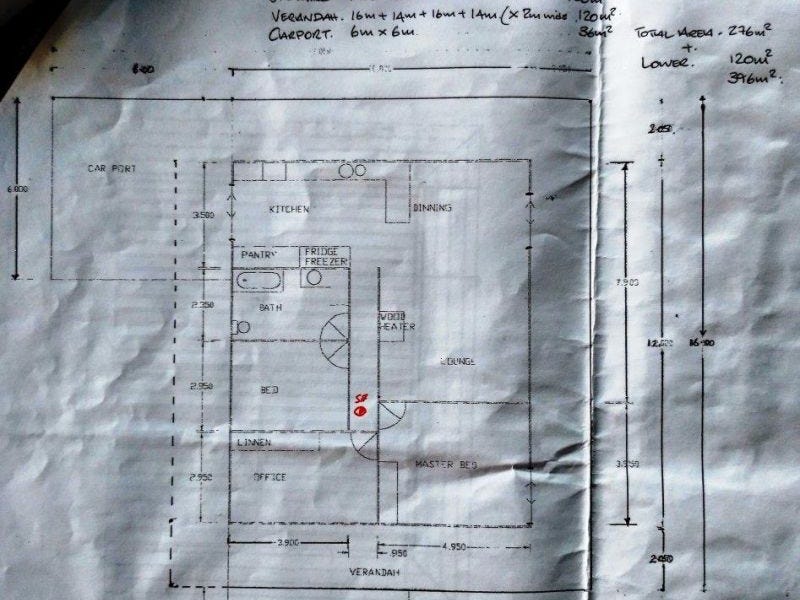 VERANDAH. 16m + 14m + 16m + 14m (x 2m wide) 120m²
CARPORT. 6m x 6m. 36m²
TOTAL AREA - 276m²
+
LOWER. 120m²
396m²
6.000
CAR PORT
3.500
KITCHEN
DINNING
PANTRY
FRIDGE
FREEZER
2.350
BATH
WOOD
HEATER
LOUNGE
2.950
BED
LINNEN
2.950
OFFICE
MASTER BED
3.900
.950
4.950
VERANDAH
2.050
12.000
2.050